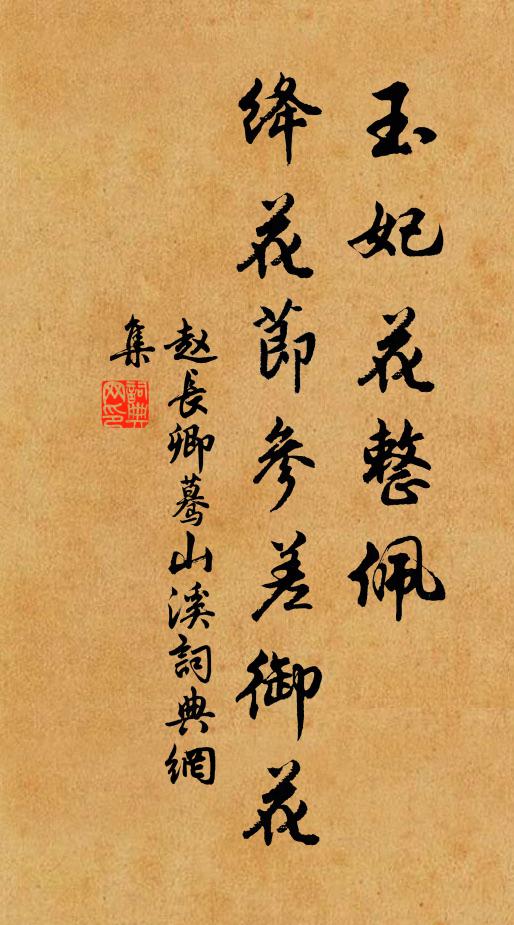 玉妃花整佩
绛花節參差御花
赵長卿蓦山溪詞典網
集
詞典网印